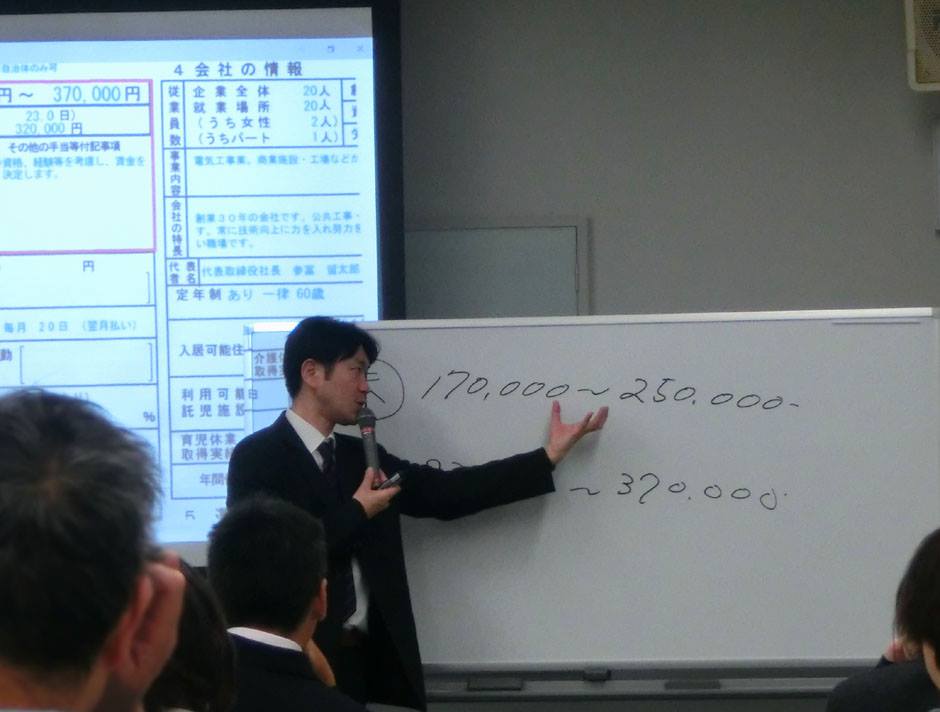 自治体のみ可
円～ 370,000円
23.0日)
320,000 円
その他の手当等付記事項
資格、経験等を考慮し、賃金を
決定します。
円
毎月 20日 (翌月払い)
%
4 会社の情報
従業員数
企業全体 20人
就業場所 20人
(うち女性 2人)
(うちパート 1人)
事業内容
電気工事業。商業施設・工場などか
会社の特長
創業30年の会社です。公共工事・
す。常に技術向上に力を入れ努力を
い職場です。
代表者名
代表取締役社長 夢冨 留太郎
定年制 あり 一律 60歳
入居可能住
利用可能
託児施設
育児休業
取得実績
介護休
取得実
年間
5
170,000～250,000-
～370.000